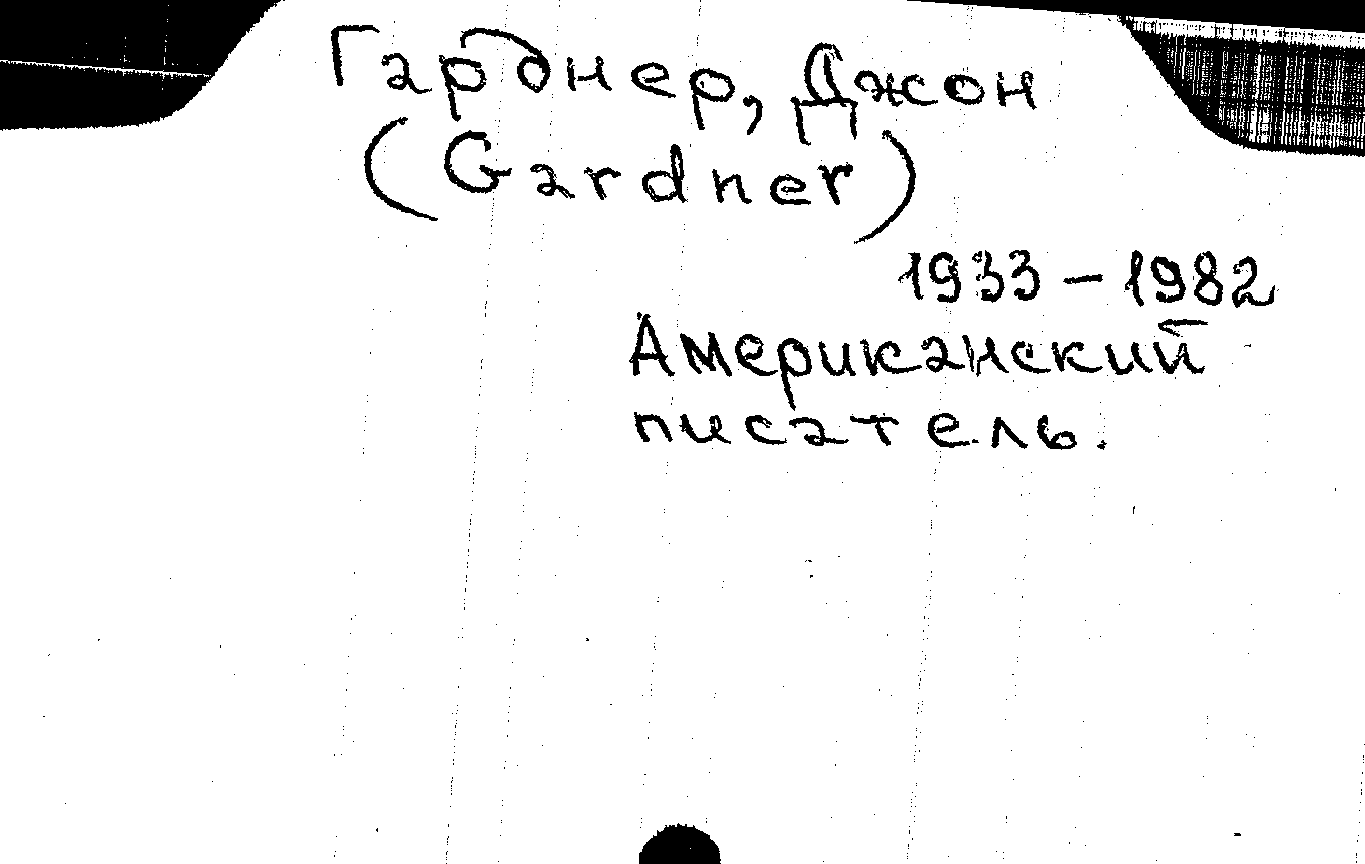 Гарднер, Джон
(Gardner)
1933 – 1982
Американский
писатель.